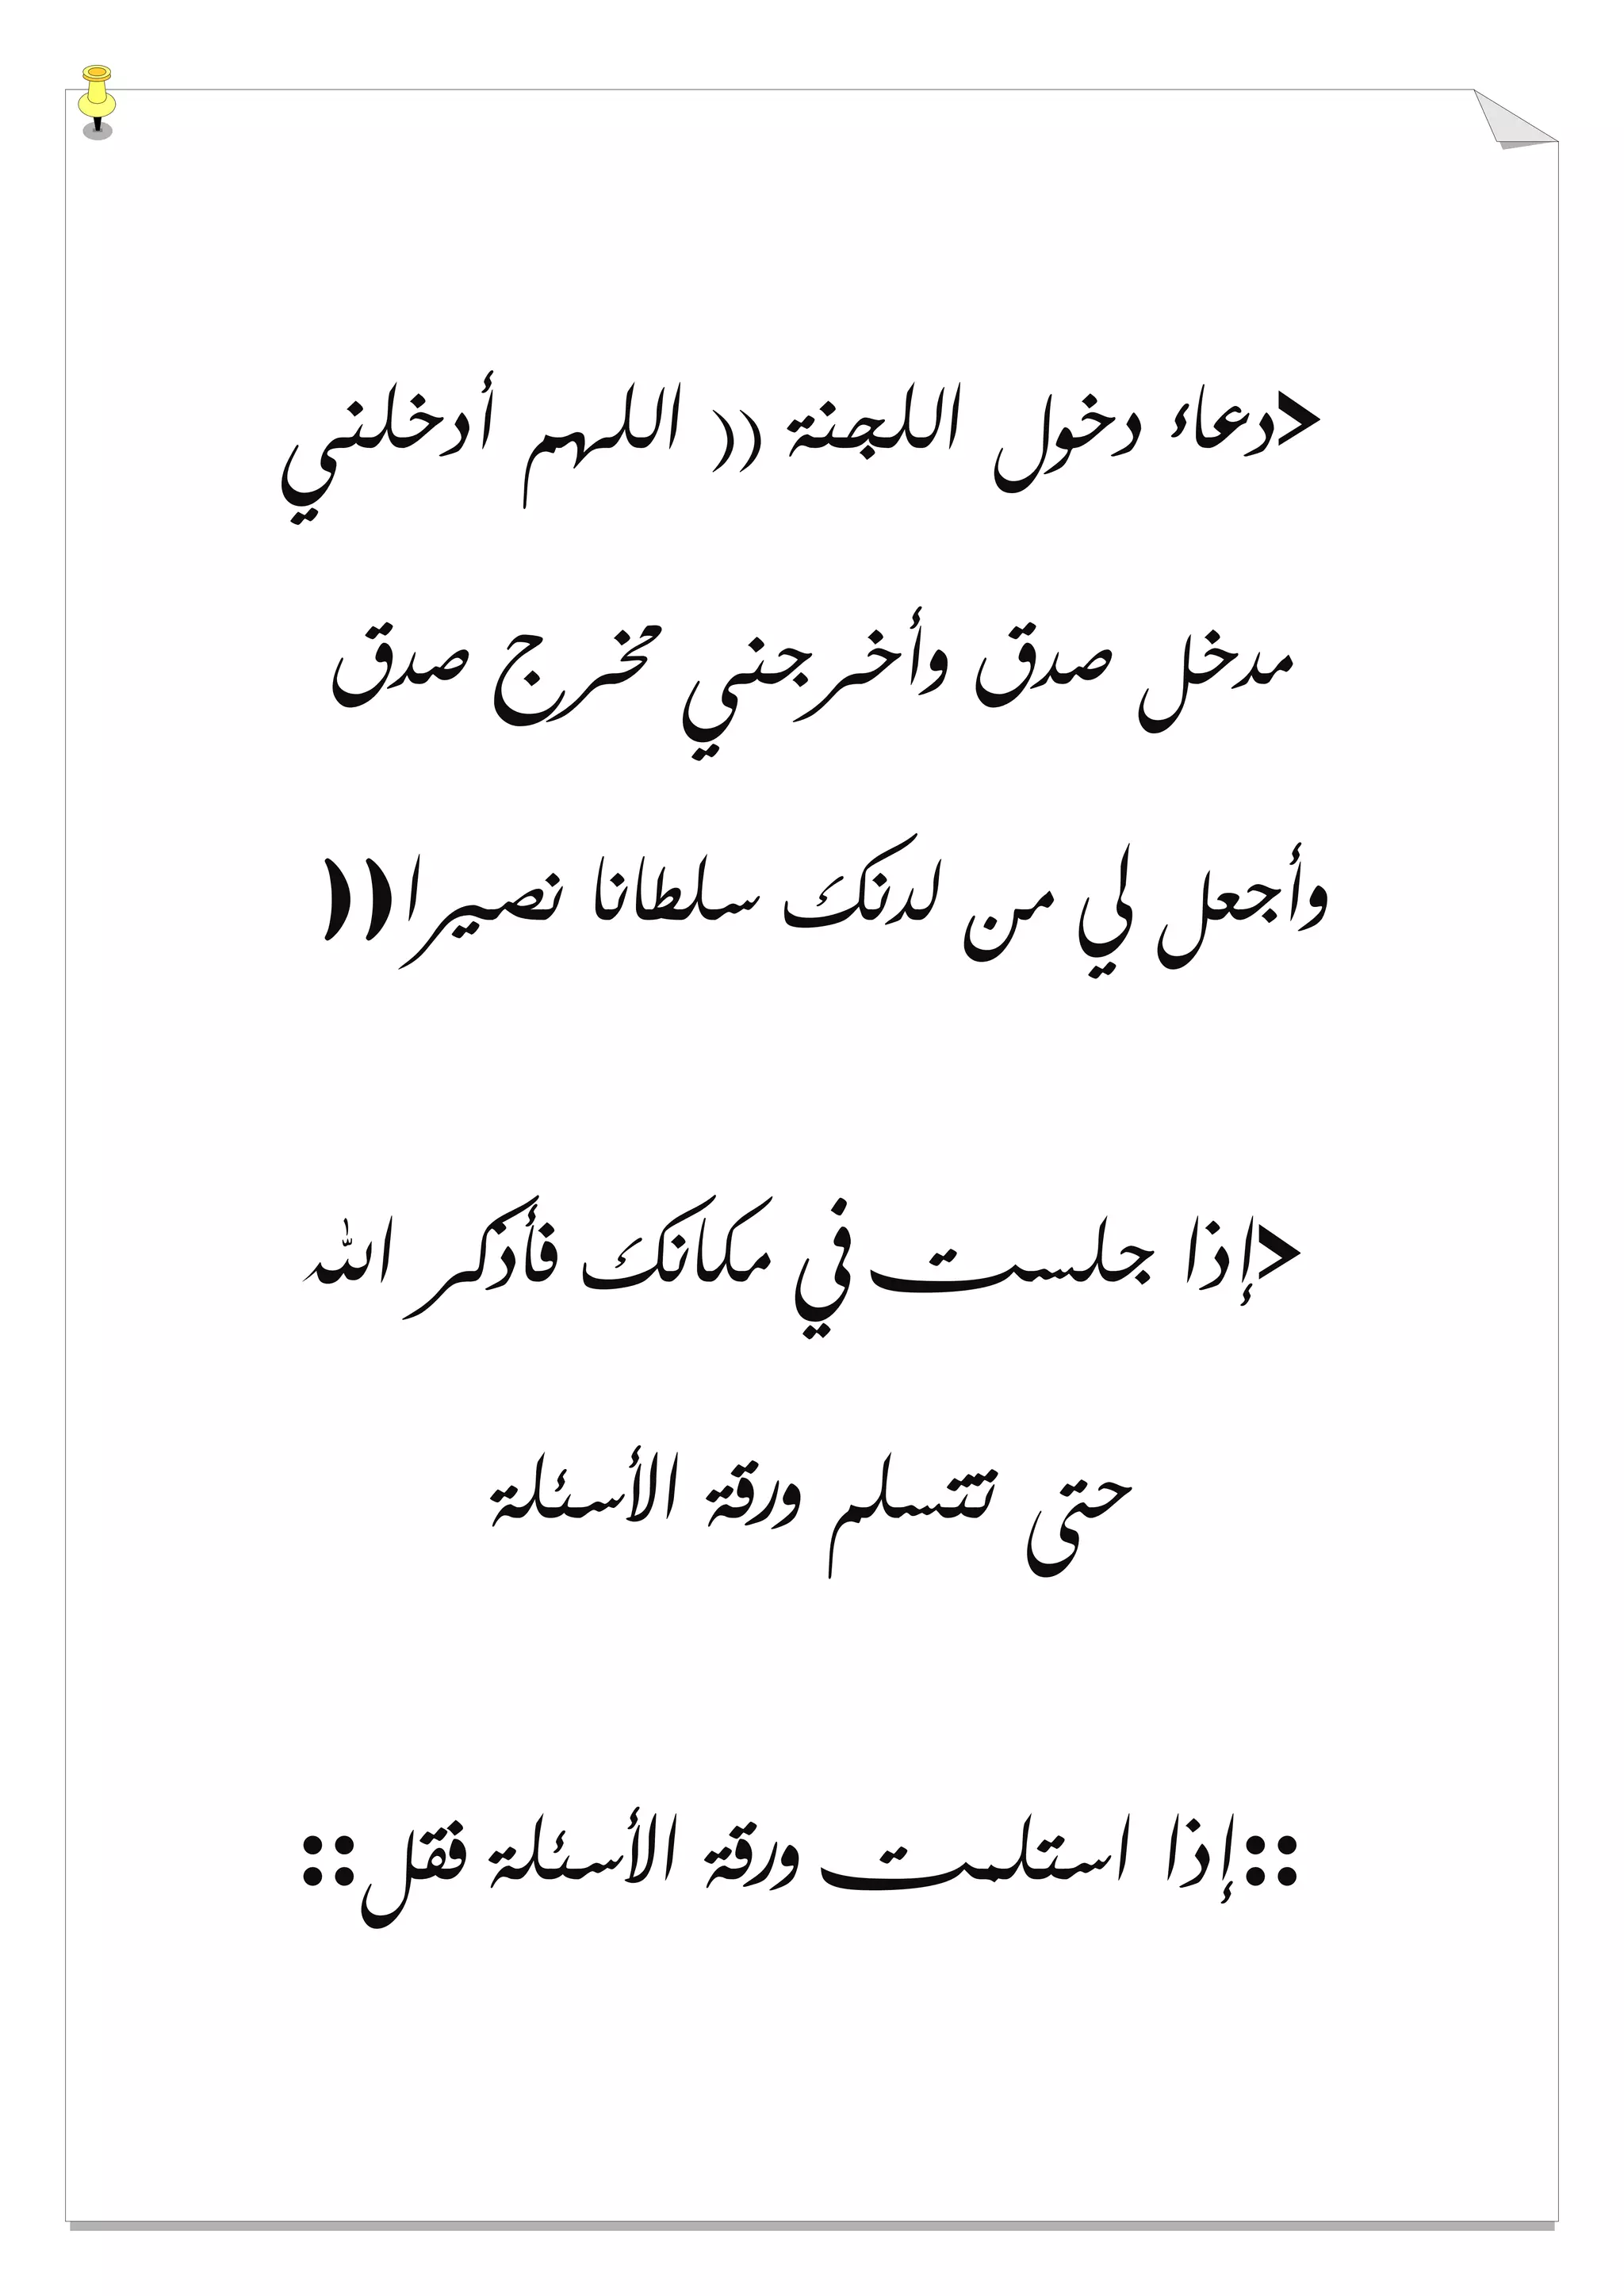 ➤دعاء دخول اللجنة (( اللهم أدخلني
مدخل صدق وأخرجني مخرج صدق
وأجعل لي من لدنك سلطانا نصيرا((
➤إذا جلست في مكانك فأذكر الله
حتى تتسلم ورقة الأسئلة
::إذا استلمت ورقة الأسئلة فقل::